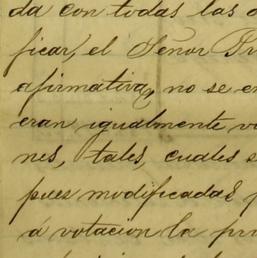 da con todas las
ficar, el Señor
afirmativa, no se
eran igualmente
nes, tales, cuales
pues modificadas
á votacion la